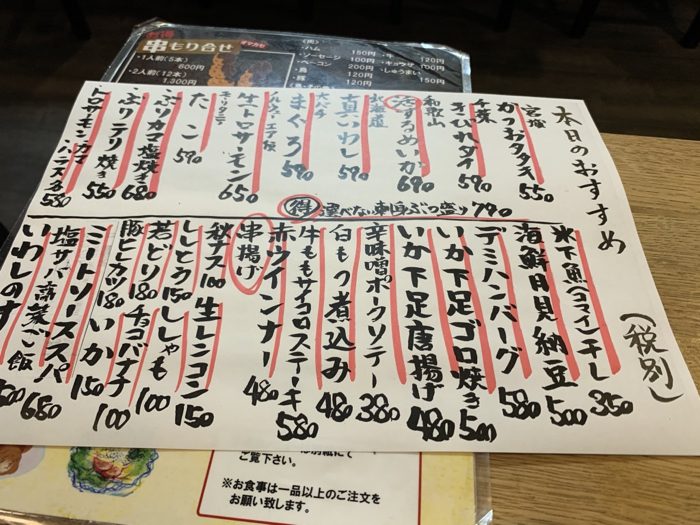 本日のおすすめ
(税別)
宮城
かつおタタキ 550
千葉
きびれダイ 590
和歌山
するめいか 690
北海道
真いわし 590
大バチ
まぐろ 590
生トロサーモン 650
たこ 590
ぶりカマ塩焼き 680
ぶりテリ焼き 550
トロサーモンカマ
ハラス有 580
得 選べない刺身ぶつ盛り 790
氷下魚(コマイ)干し 350
海鮮月見納豆 500
デミハンバーグ 580
いか下足ゴロ焼き 500
いか下足唐揚げ 480
辛味噌ポークソテー 380
白もつ煮込み 480
牛ももサイコロステーキ 580
赤ウインナー 480
串揚げ
秋ナス 100 生レンコン 150
ししとう 150 ししゃも 100
若どり 180 チョコバナナ 100
豚ヒレカツ 180 いか 150
ミートソーススパ 680
塩サバ高菜ご飯
いわしの
串もり合せ
オマカセ
・1人前(5本)
600円
・2人前(12本)
1,300円
・ハム 150円
・ソーセージ 100円
・ベーコン 200円
・鳥 120円
・豚 120円
120円
・ギョウザ 100円
・しゅうまい
150円
ご覧下さい。
※お食事は一品以上のご注文を
お願い致します。